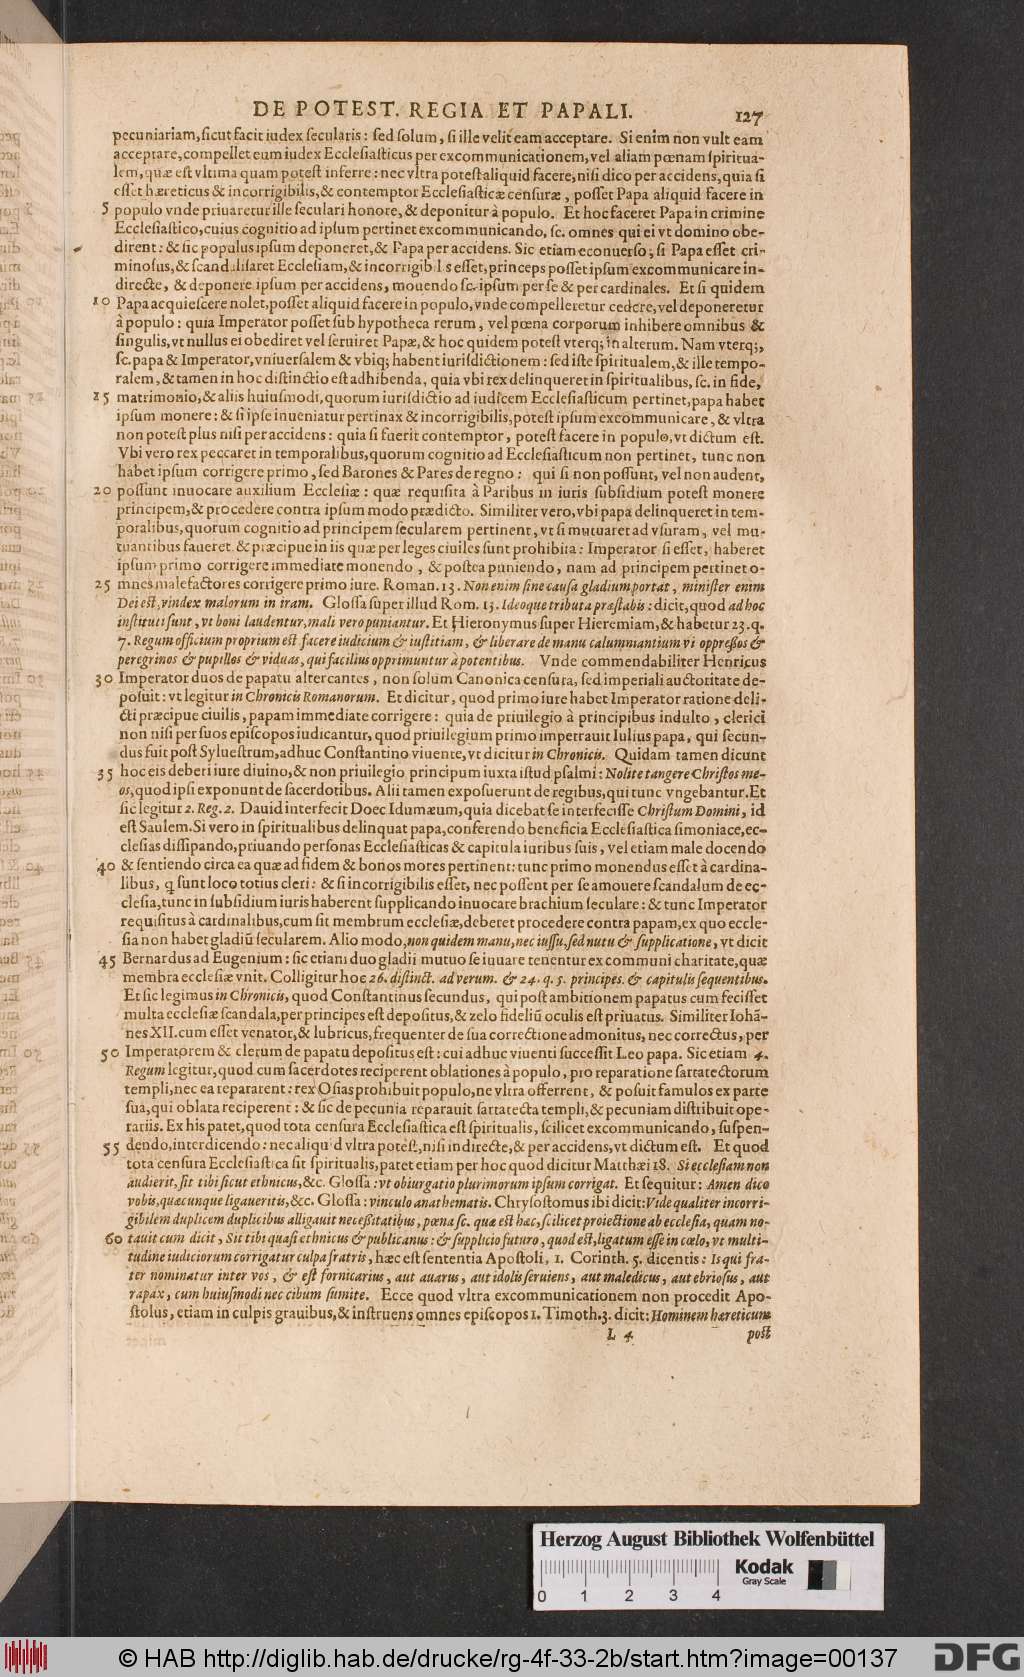 DE POTEST. REGIA ET PAPALI. 127
pecuniariam, sicut facit iudex secularis: sed solum, si ille velit eam acceptare. Si enim non vult eam
acceptare, compellet eum iudex Ecclesiasticus per excommunicationem, vel aliam pœnam spiritua-
lem, quæ est vltima quam potest inferre: nec vltra potest aliquid facere, nisi dico per accidens, quia si
esset hæreticus & incorrigibilis, & contemptor Ecclesiasticæ censuræ, posset Papa aliquid facere in
5 populo vnde priuaretur ille seculari honore, & deponitur à populo. Et hoc faceret Papa in crimine
Ecclesiastico, cuius cognitio ad ipsum pertinet excommunicando, sc. omnes qui ei vt domino obe-
dirent: & sic populus ipsum deponeret, & Papa per accidens. Sic etiam econuerso; si Papa esset cri-
minosus, & scandalisaret Ecclesiam, & incorrigibilis esset, princeps posset ipsum excommunicare in-
directe, & deponere ipsum per accidens, mouendo sc. ipsum per se & per cardinales. Et si quidem
10 Papa acquiescere nolet, posset aliquid facere in populo, vnde compelleretur cedere, vel deponeretur
à populo: quia Imperator posset sub hypotheca rerum, vel pœna corporum inhibere omnibus &
singulis, vt nullus ei obediret vel seruiret Papæ, & hoc quidem potest vterq; in alterum. Nam vterq;,
sc. papa & Imperator, vniuersalem & vbiq; habent iurisdictionem: sed iste spiritualem, & ille tempo-
ralem, & tamen in hoc distinctio est adhibenda, quia vbi rex delinqueret in spiritualibus, sc. in fide,
15 matrimonio, & aliis huiusmodi, quorum iurisdictio ad iudicem Ecclesiasticum pertinet, papa habet
ipsum monere: & si ipse inueniatur pertinax & incorrigibilis, potest ipsum excommunicare, & vltra
non potest plus nisi per accidens: quia si fuerit contemptor, potest facere in populo, vt dictum est.
Vbi vero rex peccaret in temporalibus, quorum cognitio ad Ecclesiasticum non pertinet, tunc non
habet ipsum corrigere primo, sed Barones & Pares de regno: qui si non possunt, vel non audent,
20 possunt inuocare auxilium Ecclesiæ: quæ requisita à Paribus in iuris subsidium potest monere
principem, & procedere contra ipsum modo prædicto. Similiter vero, vbi papa delinqueret in tem-
poralibus, quorum cognitio ad principem secularem pertinent, vt si mutuaret ad vsuram, vel mu-
tuantibus faueret & præcipue in iis quæ per leges ciuiles sunt prohibita: Imperator si esset, haberet
ipsum primo corrigere immediate monendo, & postea puniendo, nam ad principem pertinet o-
25 mnes malefactores corrigere primo iure. Roman. 13. Non enim sine causa gladium portat, minister enim
Dei est, vindex malorum in iram. Glossa super illud Rom. 13. Ideoque tributa præstabis: dicit, quod ad hoc
instituti sunt, vt boni laudentur, mali vero puniantur. Et Hieronymus super Hieremiam, & habetur 23. q.
7. Regum officium proprium est facere iudicium & iustitiam, & liberare de manu calumniantium vi oppressos &
peregrinos & pupillos & viduas, qui facilius opprimuntur à potentibus. Vnde commendabiliter Henricus
30 Imperator duos de papatu altercantes, non solum Canonica censura, sed imperiali auctoritate de-
posuit: vt legitur in Chronicis Romanorum. Et dicitur, quod primo iure habet Imperator ratione deli-
cti præcipue ciuilis, papam immediate corrigere: quia de priuilegio à principibus indulto, clerici
non nisi per suos episcopos iudicantur, quod priuilegium primo impetrauit Iulius papa, qui secun-
dus fuit post Syluestrum, adhuc Constantino viuente, vt dicitur in Chronicis. Quidam tamen dicunt
35 hoc eis deberi iure diuino, & non priuilegio principum iuxta istud psalmi: Nolite tangere Christos me-
os, quod ipsi exponunt de sacerdotibus. Alii tamen exposuerunt de regibus, qui tunc vngebantur. Et
sic legitur 2. Reg. 2. Dauid interfecit Doec Idumæum, quia dicebat se interfecisse Christum Domini, id
est Saulem. Si vero in spiritualibus delinquat papa, conferendo beneficia Ecclesiastica simoniace, ec-
clesias dissipando, priuando personas Ecclesiasticas & capitula iuribus suis, vel etiam male docendo
40 & sentiendo circa ea quæ ad fidem & bonos mores pertinent: tunc primo monendus esset à cardina-
libus, q̃ sunt loco totius cleri: & si incorrigibilis esset, nec possent per se amouere scandalum de ec-
clesia, tunc in subsidium iuris haberent supplicando inuocare brachium seculare: & tunc Imperator
requisitus à cardinalibus, cum sit membrum ecclesiæ, deberet procedere contra papam, ex quo eccle-
sia non habet gladiũ secularem. Alio modo, non quidem manu, nec iussu, sed nutu & supplicatione, vt dicit
45 Bernardus ad Eugenium: sic etiam duo gladii mutuo se iuuare tenentur ex communi charitate, quæ
membra ecclesiæ vnit. Colligitur hoc 26. distinct. ad verum. & 24. q. 5. principes. & capitulis sequentibus.
Et sic legimus in Chronicis, quod Constantinus secundus, qui post ambitionem papatus cum fecisset
multa ecclesiæ scandala, per principes est depositus, & zelo fideliũ oculis est priuatus. Similiter Iohã-
nes XII. cum esset venator, & lubricus, frequenter de sua correctione admonitus, nec correctus, per
50 Imperatorem & clerum de papatu depositus est: cui adhuc viuenti successit Leo papa. Sic etiam 4.
Regum legitur, quod cum sacerdotes reciperent oblationes à populo, pro reparatione sartatectorum
templi, nec ea repararent: rex Osias prohibuit populo, ne vltra offerrent, & posuit famulos ex parte
sua, qui oblata reciperent: & sic de pecunia reparauit sartatecta templi, & pecuniam distribuit ope-
rariis. Ex his patet, quod tota censura Ecclesiastica est spiritualis, scilicet excommunicando, suspen-
55 dendo, interdicendo: nec aliquid vltra potest, nisi indirecte, & per accidens, vt dictum est. Et quod
tota censura Ecclesiastica sit spiritualis, patet etiam per hoc quod dicitur Matthæi 18. Si ecclesiam non
audierit, sit tibi sicut ethnicus, &c. Glossa: vt obiurgatio plurimorum ipsum corrigat. Et sequitur: Amen dico
vobis, quæcunque ligaueritis, &c. Glossa: vinculo anathematis. Chrysostomus ibi dicit: Vide qualiter incorri-
gibilem duplicem duplicibus alligauit necessitatibus, pœna sc. quæ est hæc, scilicet proiectione ab ecclesia, quam no-
60 tauit cum dicit, Sit tibi quasi ethnicus & publicanus: & supplicio futuro, quod est, ligatum esse in cœlo, vt multi-
tudine iudiciorum corrigatur culpa fratris, hæc est sententia Apostoli, 1. Corinth. 5. dicentis: Is qui fra-
ter nominatur inter vos, & est fornicarius, aut auarus, aut idolis seruiens, aut maledicus, aut ebriosus, aut
rapax, cum huiusmodi nec cibum sumite. Ecce quod vltra excommunicationem non procedit Apo-
stolus, etiam in culpis grauibus, & instruens omnes episcopos 1. Timoth. 3. dicit: Hominem hæreticum
L 4 post
Herzog August Bibliothek Wolfenbüttel
Kodak
Gray Scale
0 1 2 3 4
© HAB http://diglib.hab.de/drucke/rg-4f-33-2b/start.htm?image=00137
DFG